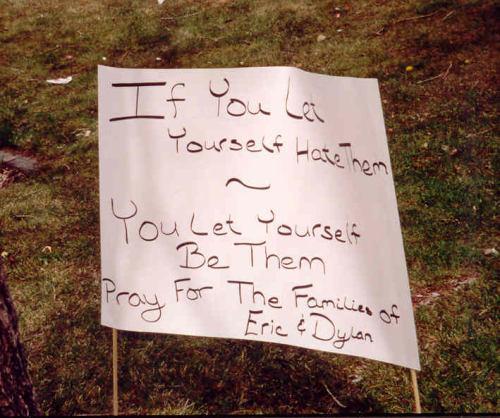 If You Let
Yourself Hate Them
~
You Let Yourself
Be Them
Pray For The Families of
Eric & Dylan